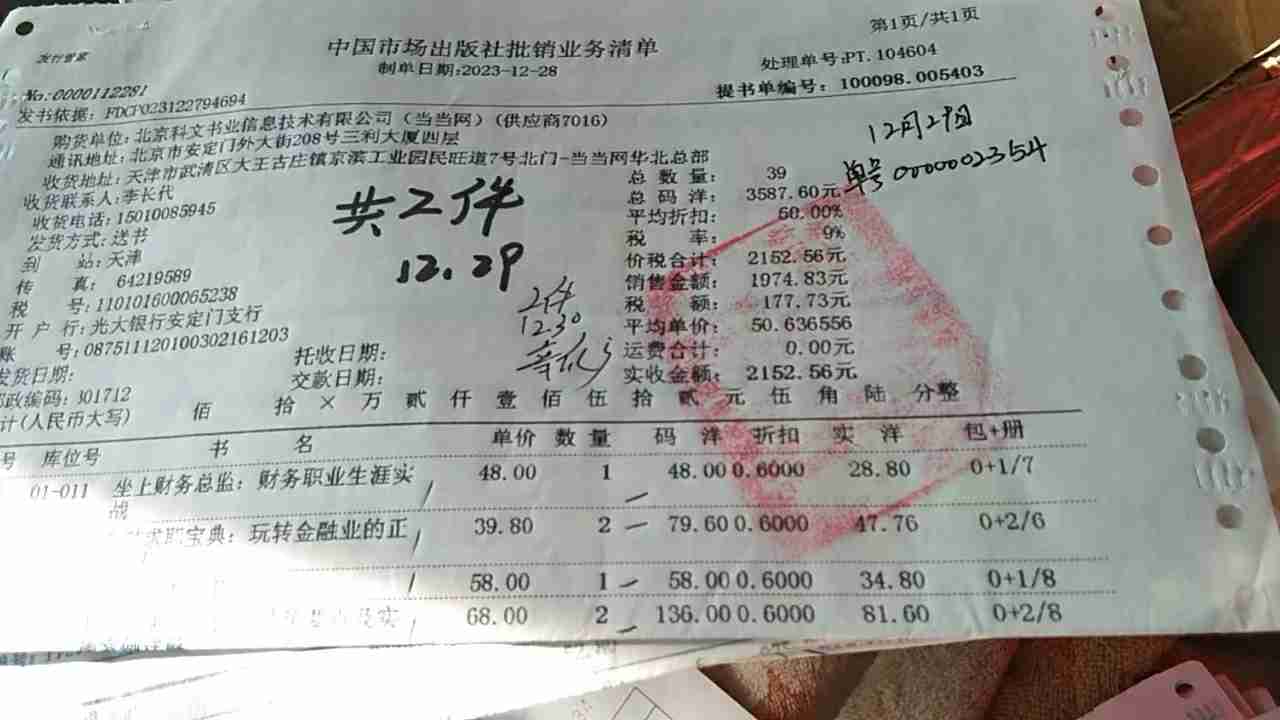 第1页/共1页
发行管家
中国市场出版社批销业务清单
制单日期:2023-12-28
处理单号:PT.104604
No:0000112281
提书单编号: 100098.005403
发书依据: FDCP023122794694
购货单位: 北京科文书业信息技术有限公司 (当当网) (供应商7016)
通讯地址: 北京市安定门外大街208号三利大厦四层
收货地址: 天津市武清区大王古庄镇京滨工业园民旺道7号北门-当当网华北总部
收货联系人: 李长代
收货电话: 15010085945
发货方式: 送书
到 站: 天津
传 真: 64219589
税 号: 110101600065238
开户行: 光大银行安定门支行
账 号: 08751112010030216​1203
发货日期:
邮政编码: 301712
托收日期:
交款日期:
共2件
12.29
2件
12.30
12月29日
单号0000002354
总数量: 39
总码洋: 3587.60元
平均折扣: 60.00%
税 率: 9%
价税合计: 2152.56元
销售金额: 1974.83元
税 额: 177.73元
平均单价: 50.636556
运费合计: 0.00元
实收金额: 2152.56元
计(人民币大写) 佰 拾 × 万 贰 仟 壹 佰 伍 拾 贰 元 伍 角 陆 分整
号 库位号 书 名 单价 数量 码 洋 折扣 实 洋 包+册
01-011 坐上财务总监: 财务职业生涯实战 48.00 1 48.00 0.6000 28.80 0+1/7
求职宝典: 玩转金融业的正 39.80 2 79.60 0.6000 47.76 0+2/6
58.00 1 58.00 0.6000 34.80 0+1/8
68.00 2 136.00 0.6000 81.60 0+2/8